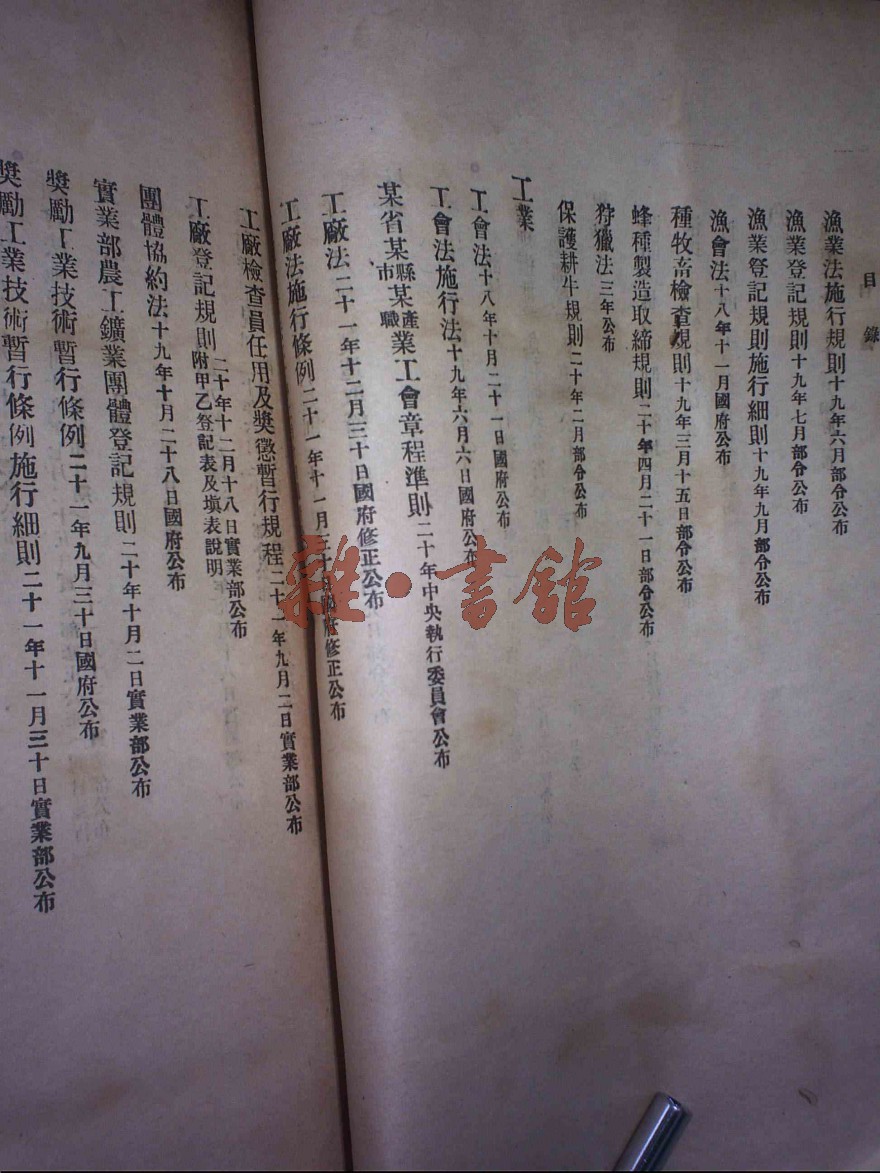 目錄
漁業法施行規則十九年六月部令公布
漁業登記規則十九年七月部令公布
漁業登記規則施行細則十九年九月部令公布
漁會法十八年十一月國府公布
種牧畜檢查規則十九年三月十五日部令公布
蜂種製造取締規則二十年四月二十一日部令公布
狩獵法三年公布
保護耕牛規則二十年二月部令公布
工業
工會法十八年十月二十一日國府公布
工會法施行法十九年六月六日國府公布
某省某縣市某產職業工會章程準則二十年中央執行委員會公布
工廠法二十一年十二月三十日國府修正公布
工廠法施行條例二十一年十一月三十日國府修正公布
工廠檢查員任用及獎懲暫行規程二十一年九月二日實業部公布
工廠登記規則二十年十二月十八日實業部公布
附甲乙登記表及填表說明
團體協約法十九年十月二十八日國府公布
實業部農工鑛業團體登記規則二十年十月二日實業部公布
獎勵工業技術暫行條例二十一年九月三十日國府公布
獎勵工業技術暫行條例施行細則二十一年十一月三十日實業部公布
雜·書館